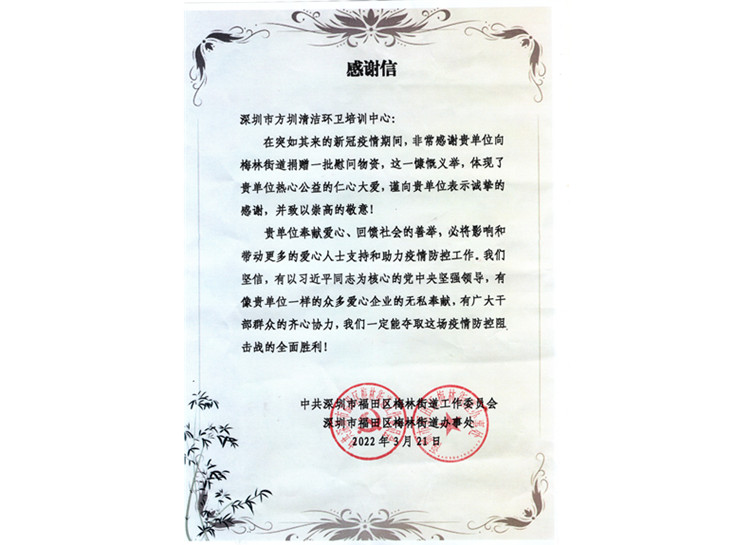 感谢信
深圳市方圳清洁环卫培训中心：
在突如其来的新冠疫情期间，非常感谢贵单位向
梅林街道捐赠一批慰问物资，这一慷慨义举，体现了
贵单位热心公益的仁心大爱，谨向贵单位表示诚挚的
感谢，并致以崇高的敬意！
贵单位奉献爱心、回馈社会的善举，必将影响和
带动更多的爱心人士支持和助力疫情防控工作。我们
坚信，有以习近平同志为核心的党中央坚强领导，有
像贵单位一样的众多爱心企业的无私奉献，有广大干
部群众的齐心协力，我们一定能夺取这场疫情防控阻
击战的全面胜利！
中共深圳市福田区梅林街道工作委员会
深圳市福田区梅林街道办事处
2022年3月21日